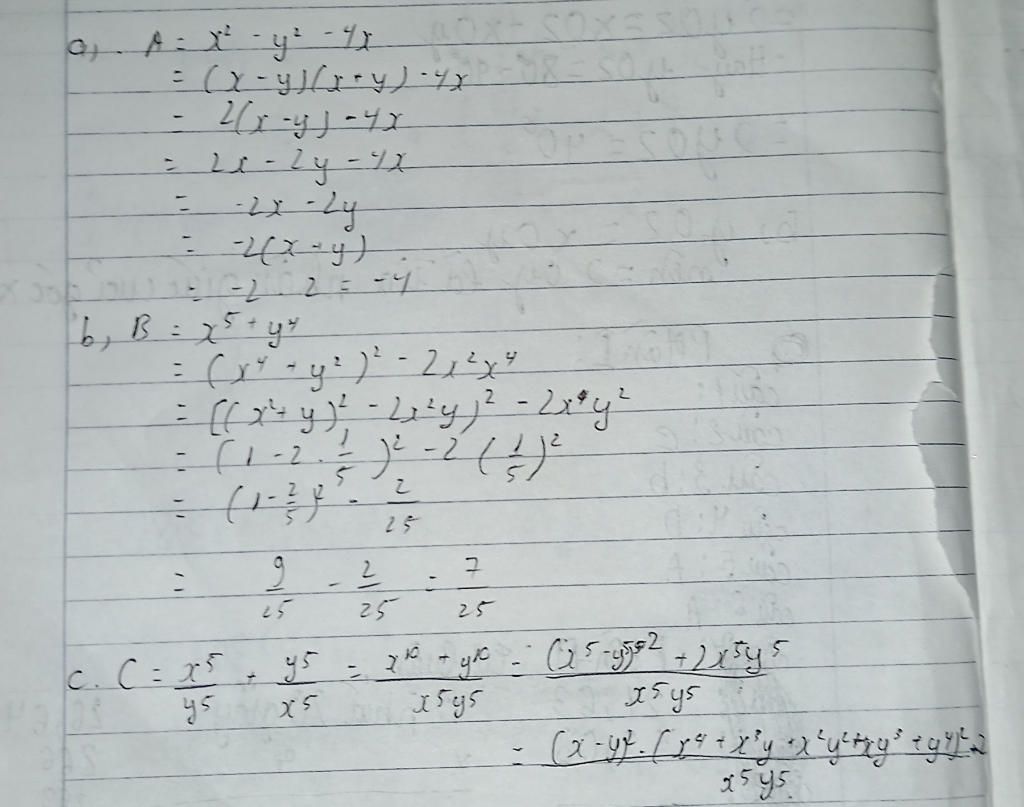 a, A = x² - y² - 4x
= (x - y)(x + y) - 4x
= 2(x - y) - 4x
= 2x - 2y - 4x
= -2x - 2y
= -2(x + y)
= -2 . 2 = -4
b, B = x⁵ + y⁴
= (x⁴ + y²)² - 2x²x⁴
= [(x² + y)² - 2x²y)² - 2x⁴y²
= (1 - 2 . 1/5)² - 2 (1/5)²
= (1 - 2/5)² - 2/25
= 9/25 - 2/25 = 7/25
c. C = x⁵/y⁵ + y⁵/x⁵ = x¹⁰ + y¹⁰/x⁵y⁵ = (x⁵ - y⁵)² + 2x⁵y⁵/x⁵y⁵
= (x - y)² . (x⁴ + x³y + x²y² + xy³ + y⁴)² + 2/x⁵y⁵